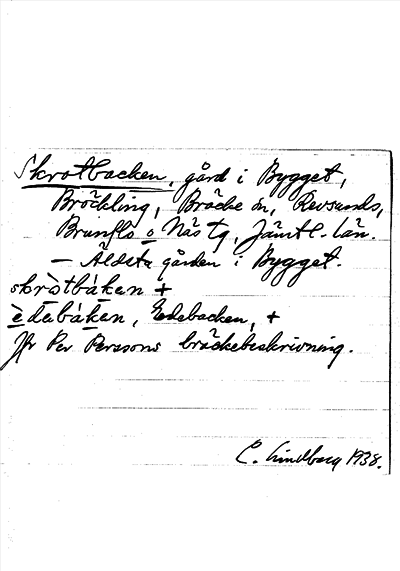 Skrotbacken, gård i Bygget,
Bröckling, Bräcke sn, Revsunds,
Brunflo o Näs tg, Jämtl. län.
— Äldsta gården i Bygget.
skròtbákɐn +
èdɐbákɐn, Edebacken, +
Jfr Per Perssons bräckebeskrivning.
C. Lindberg 1938.